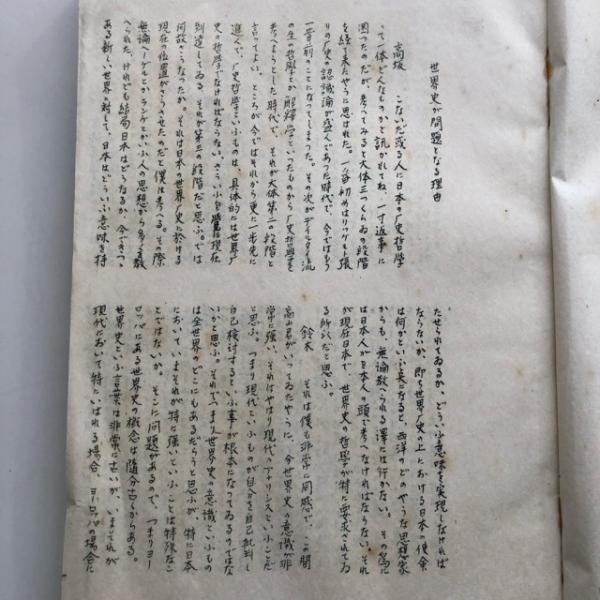 世界史が問題となる理由
高坂　こないだ或る人に日本の厂史哲学
って一体どんなものかと訊かれてね、一寸返事に
困ったのだが、考ってみると大体三つくらゐの段階
を経て来たやうに思はれた。一番初めはリッケルト張
りの厂史の認識論が盛んであった時代で、今ではもう
一昔前のことになってしまった。その次がディルタイ流
の生の哲学とか解釋学といったものから厂史哲学を
考へようとした時代で、それが大体第二の段階と
言ってよい。ところが今ではそれから更に一歩先に
進んで、厂史哲学といふものは、具体的には世界厂
史の哲学でなければならない、さういふ現在
到達してゐる、それが第三の段階だと思ふ。では
何故さうなったか。それは日本の世界厂史に於ける
現在の位置がさうさせたのだと僕は考へる。その際
無論ヘーゲルとかランケとかいふ人の思想から多く教
へられた、けれども結局日本はどうなるか、今できつゝ
ある新しい世界に対して、日本はどういふ意味を持
たせられてゐるか、どういふ意味を実現しなければ
ならないか、即ち世界厂史の上における日本の使命
は何かといふ点になると、西洋のどのやうな思想家
からも、無論教へられる譯には行かない。その為に
は日本人が日本人の頭で考へなければならない。それ
が現在日本で、世界史の哲学が特に要求されてゐ
る所以だと思ふ。
鈴木　それは僕も非常に同感で、この間
高山君がいってゐたやうに、今世界史の意識が非
常に強い、それはやはり現代のアナリシスといふことだ
と思ふ。つまり現代といふものが自分を自己批判し
自己検討するといふ事が根本になってゐるのではな
いかと思ふ。それでつまり世界史の意識といふもの
は全世界のどこにもあるだらうと思ふが、特に日本
においていまそれが特に強いといふことは特殊なこ
とではないか。そこに問題があるので、つまりヨー
ロッパにある世界史の概念は随分古くからある。
世界史といふ言葉は非常に古いが、いまそれが
現代において特にいはれる場合、ヨーロッパの場合に